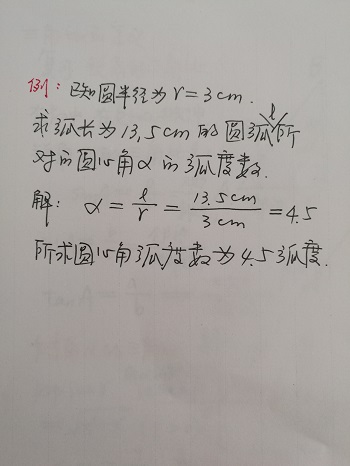 例：已知圆半径为r=3cm.
求弧长为13.5cm的圆弧l所
对的圆心角α的弧度数.
解：α=l/r=13.5cm/3cm=4.5
所求圆心角弧度数为4.5弧度.